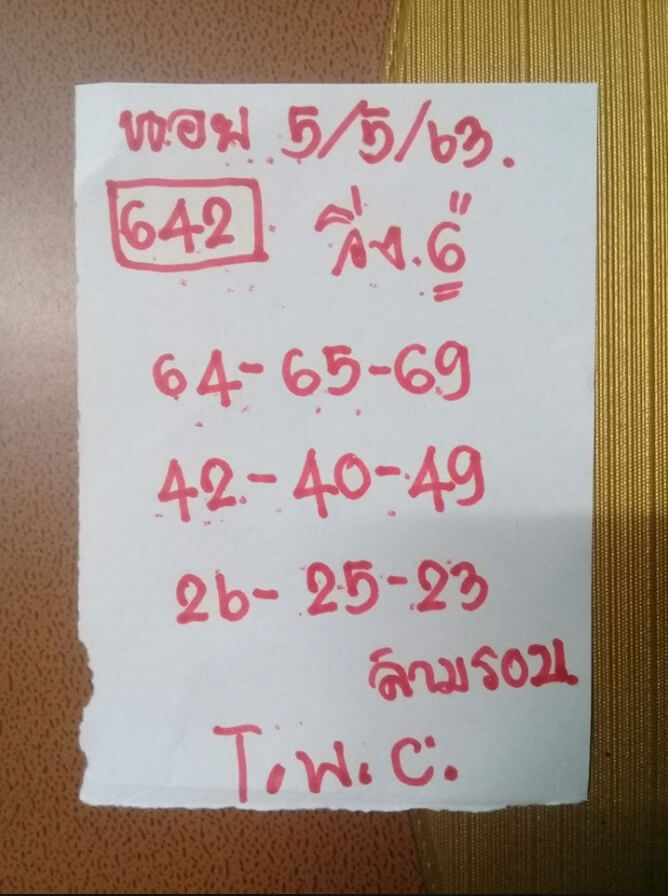 หอย 5/5/63.
642 วิ่ง.6"
64-65-69
42-40-49
26-25-23
สามรอบ
T.พ.C.